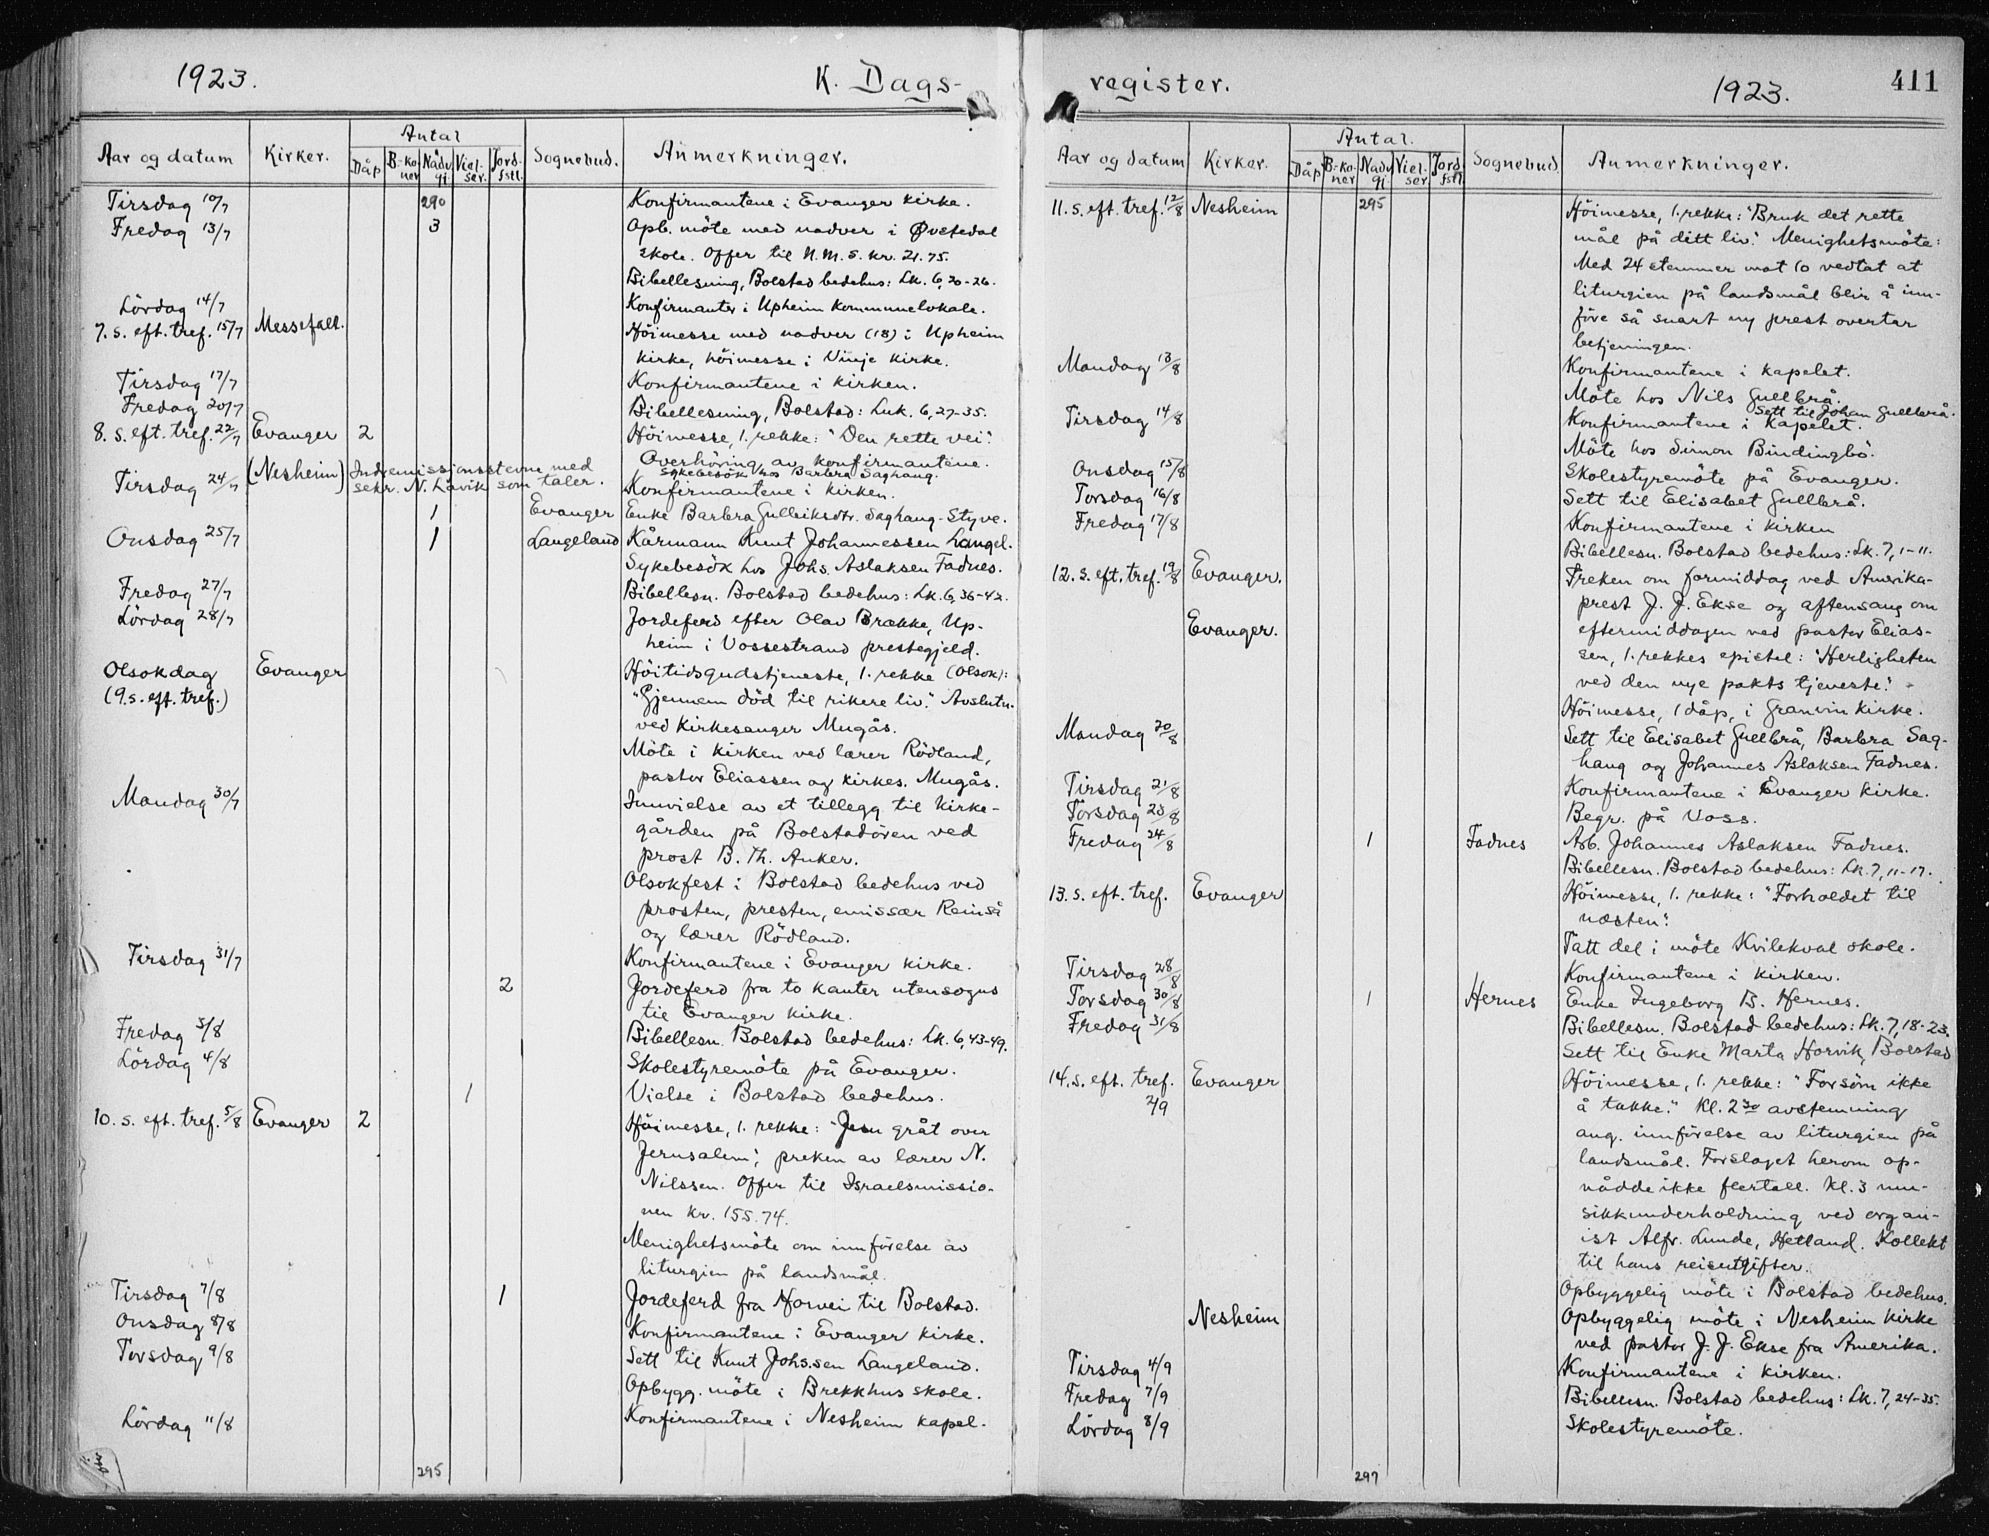 1923. K. Dags-
Antal
Aar og datum Kirker. Dåp B.-ko-ner Nadv.gj. Viel-ser. Jord-fstl. Sognebud. Anmerkninger.
Tirsdag 10/7 290 Konfirmantene i Evanger kirke.
Fredag 13/7 3 Opb. möte med nadver i Øvstedal
skole. Offer til N.M.S. kr. 21.75.
Bibellesning, Bolstad bedehus: Lk. 6,20-26.
Lördag 14/7 Konfirmanter i Upheim kommunelokale.
7. s. eft. tref. 15/7 Messefall. Höimesse med nadver (18) i Upheim
kirke, höimesse i Vinje kirke.
Tirsdag 17/7 Konfirmantene i kirken.
Fredag 20/7 Bibellesning, Bolstad: Luk. 6,27-35.
8. s. eft. tref. 22/7 Evanger 2 Höimesse, 1. rekke: "Den rette vei".
Overhöring av konfirmantene.
(Nesheim) Indremissionsstevne med
sekr. N. Lavik som taler. Sykebesök hos Barbra Saghaug.
Tirsdag 24/7 Konfirmantene i kirken.
1 Evanger Enke Barbra Gulleiksdtr. Saghaug-Styve.
Onsdag 25/7 1 Langeland Kårmann Knut Johannessen Langel.
Sykebesök hos Johs. Aslaksen Fadnes.
Fredag 27/7 Bibellesn. Bolstad bedehus: Lk. 6,36-42.
Lördag 28/7 Jordeferd efter Olav Brække, Up-
heim i Vossestrand prestegjeld.
Olsokdag Evanger Höitidsgudstjeneste, 1. rekke (Olsok):
(9. s. eft. tref.) "Gjennem död til rikere liv." Avslutn.
ved kirkesanger Mugås.
Möte i kirken ved lærer Rödland,
pastor Eliassen og kirkes. Mugås.
Mandag 30/7 Innvielse av et tillegg til kirke-
gården på Bolstadören ved
prost B. Th. Anker.
Olsokfest i Bolstad bedehus ved
prosten, presten, emissær Reinså
og lærer Rödland.
Tirsdag 31/7 Konfirmantene i Evanger kirke.
2 Jordeferd fra to kanter utensogns
til Evanger kirke.
Fredag 3/8 Bibellesn. Bolstad bedehus: Lk. 6,43-49.
Lördag 4/8 Skolestyremöte på Evanger.
1 Vielse i Bolstad bedehus.
10. s. eft. tref. 5/8 Evanger 2 Höimesse, 1. rekke: "Jesu gråt over
Jerusalem", preken av lærer N.
Nilssen. Offer til Israelsmissio-
nen kr. 155.74.
Menighetsmöte om innförelse av
liturgien på landsmål.
Tirsdag 7/8 1 Jordeferd fra Horvei til Bolstad.
Onsdag 8/8 Konfirmantene i Evanger kirke.
Torsdag 9/8 Sett til Knut Johs.sen Langeland.
Opbygg. möte i Brekkhus skole.
Lördag 11/8 Konfirmantene i Nesheim kapel.
295
register. 1923. 411
Antal.
Aar og datum Kirker. Dåp B.-ko-ner Nadv.gj. Viel-ser. Jord-fstl. Sognebud. Anmerkninger.
11. s. eft. tref. 12/8 Nesheim 295 Höimesse, 1. rekke: "Bruk det rette
mål på ditt liv." Menighetsmöte:
Med 24 stemmer mot 10 vedtat at
liturgien på landsmål blir å inn-
före så snart ny prest overtar
betjeningen.
Mandag 13/8 Konfirmantene i kapelet.
Möte hos Nils Gullbrå.
Sett til Johan Gullbrå.
Tirsdag 14/8 Konfirmantene i kapelet.
Möte hos Simon Bindingbö.
Onsdag 15/8 Skolestyremöte på Evanger.
Torsdag 16/8 Sett til Elisabet Gullbrå.
Fredag 17/8 Konfirmantene i kirken
Bibellesn. Bolstad bedehus: Lk. 7,1-11.
12. s. eft. tref. 19/8 Evanger. Preken om formiddag ved Amerika-
prest J. J. Ekse og aftensang om
Evanger. eftermiddagen ved pastor Elias-
sen, 1. rekkes epistel: "Herligheten
ved den nye pakts tjeneste."
Höimesse, 1 dåp, i Granvin kirke.
Mandag 20/8 Sett til Elisabet Gullbrå, Barbra Sag-
haug og Johannes Aslaksen Fadnes.
Tirsdag 21/8 Konfirmantene i Evanger kirke.
Torsdag 23/8 Begr. på Voss.
Fredag 24/8 1 Fadnes Arb. Johannes Aslaksen Fadnes.
Bibellesn. Bolstad bedehus: Lk. 7,11-17.
13. s. eft. tref. Evanger Höimesse, 1. rekke: "Forholdet til
næsten".
Tatt del i möte Kvilekval skole.
Tirsdag 28/8 Konfirmantene i kirken.
Torsdag 30/8 1 Hernes Enke Ingeborg B. Hernes.
Fredag 31/8 Bibellesn. Bolstad bedehus: Lk. 7,18-23.
Sett til Enke Marta Horvik, Bolstad
14. s. eft. tref. Evanger Höimesse, 1. rekke: "Forsöm ikke
2/9 å takke." Kl. 2 30 avstemning
ang. innförelse av liturgien på
landsmål. Forslaget herom op-
nådde ikke flertall. Kl. 3 mu-
sikkunderholdning ved organ-
ist Alfr. Lunde, Hetland. Kollekt
til hans reiseutgifter.
Opbyggelig möte i Bolstad bedehus.
Nesheim Opbyggelig möte i Nesheim kirke
ved pastor J. J. Ekse fra Amerika.
Tirsdag 4/9 Konfirmantene i kirken.
Fredag 7/9 Bibellesn. Bolstad bedehus: Lk. 7,24-35.
Lördag 8/9 Skolestyremöte.
297